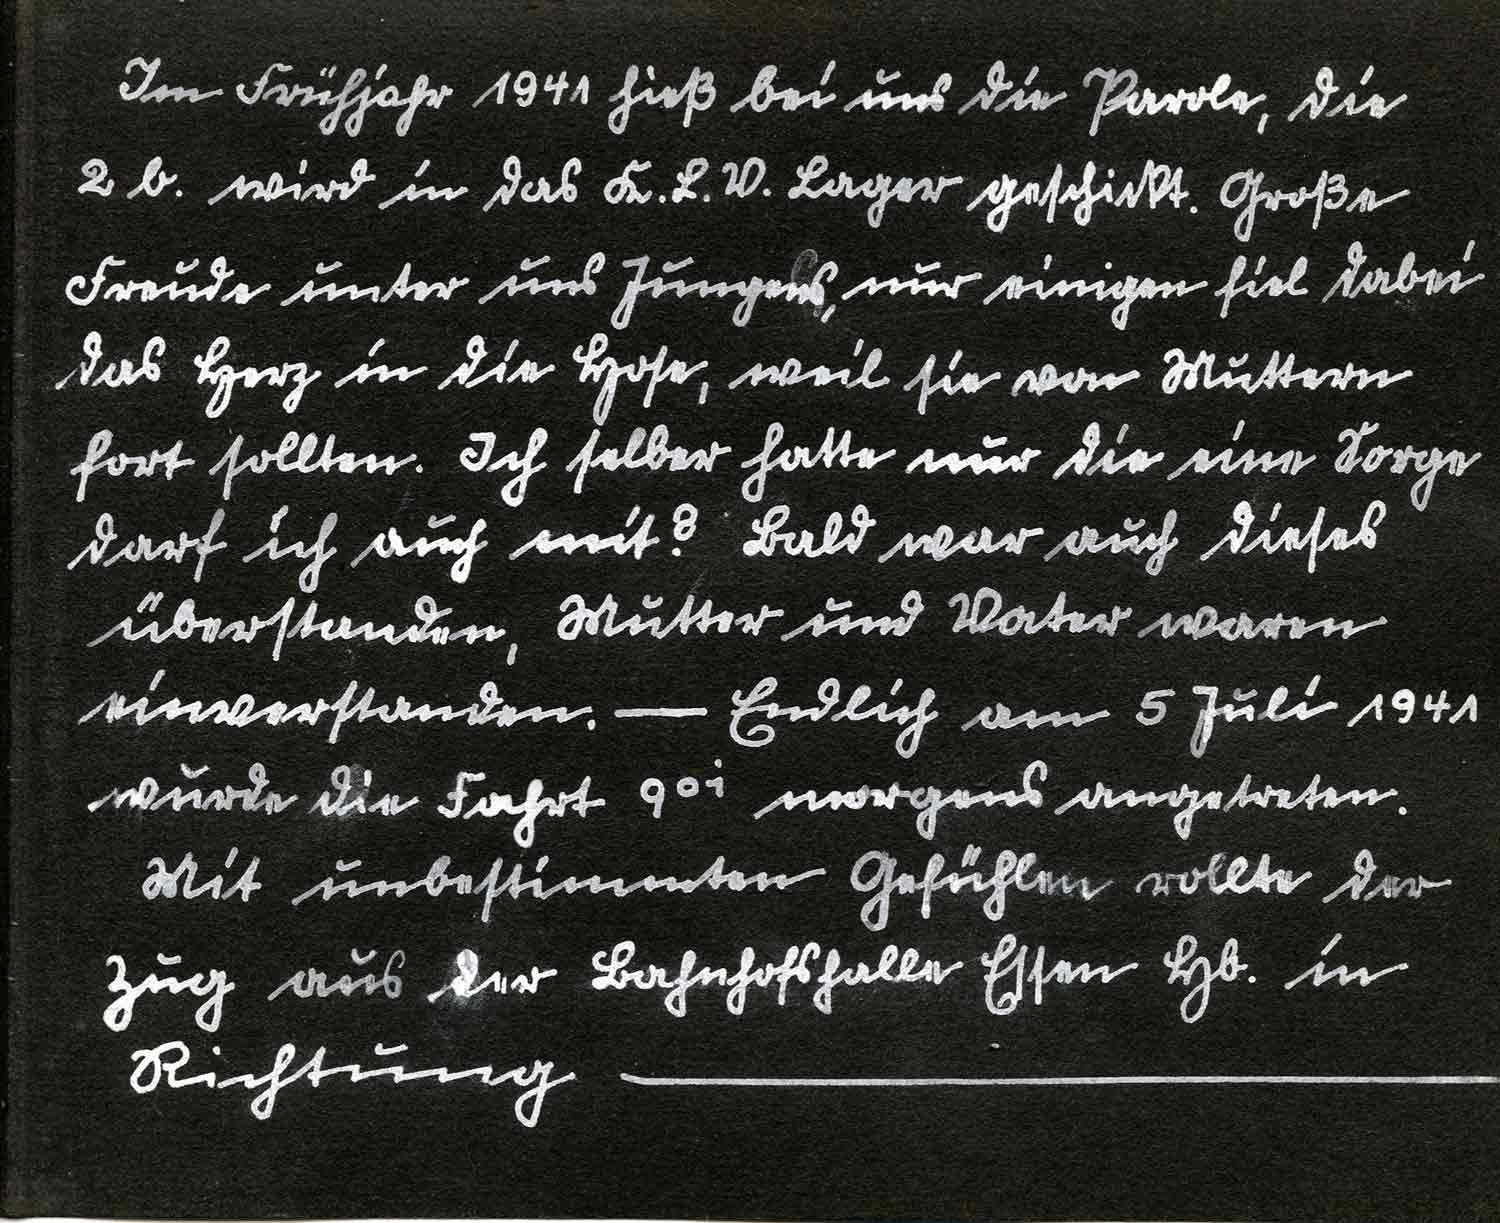 Im Frühjahr 1941 hieß bei uns die Parole, die
2 b. wird in das K.L.V. Lager geschickt. Große
Freude unter uns Jungens, nur einigen fiel dabei
das Herz in die Hose, weil sie von Muttern
fort sollten. Ich selber hatte nur die eine Sorge
darf ich auch mit? Bald war auch dieses
überstanden, Mutter und Vater waren
einverstanden. — Endlich am 5 Juli 1941
wurde die Fahrt 9⁰¹ morgens angetreten.
Mit unbestimmten Gefühlen rollte der
Zug aus der Bahnhofshalle Essen Hb. in
Richtung